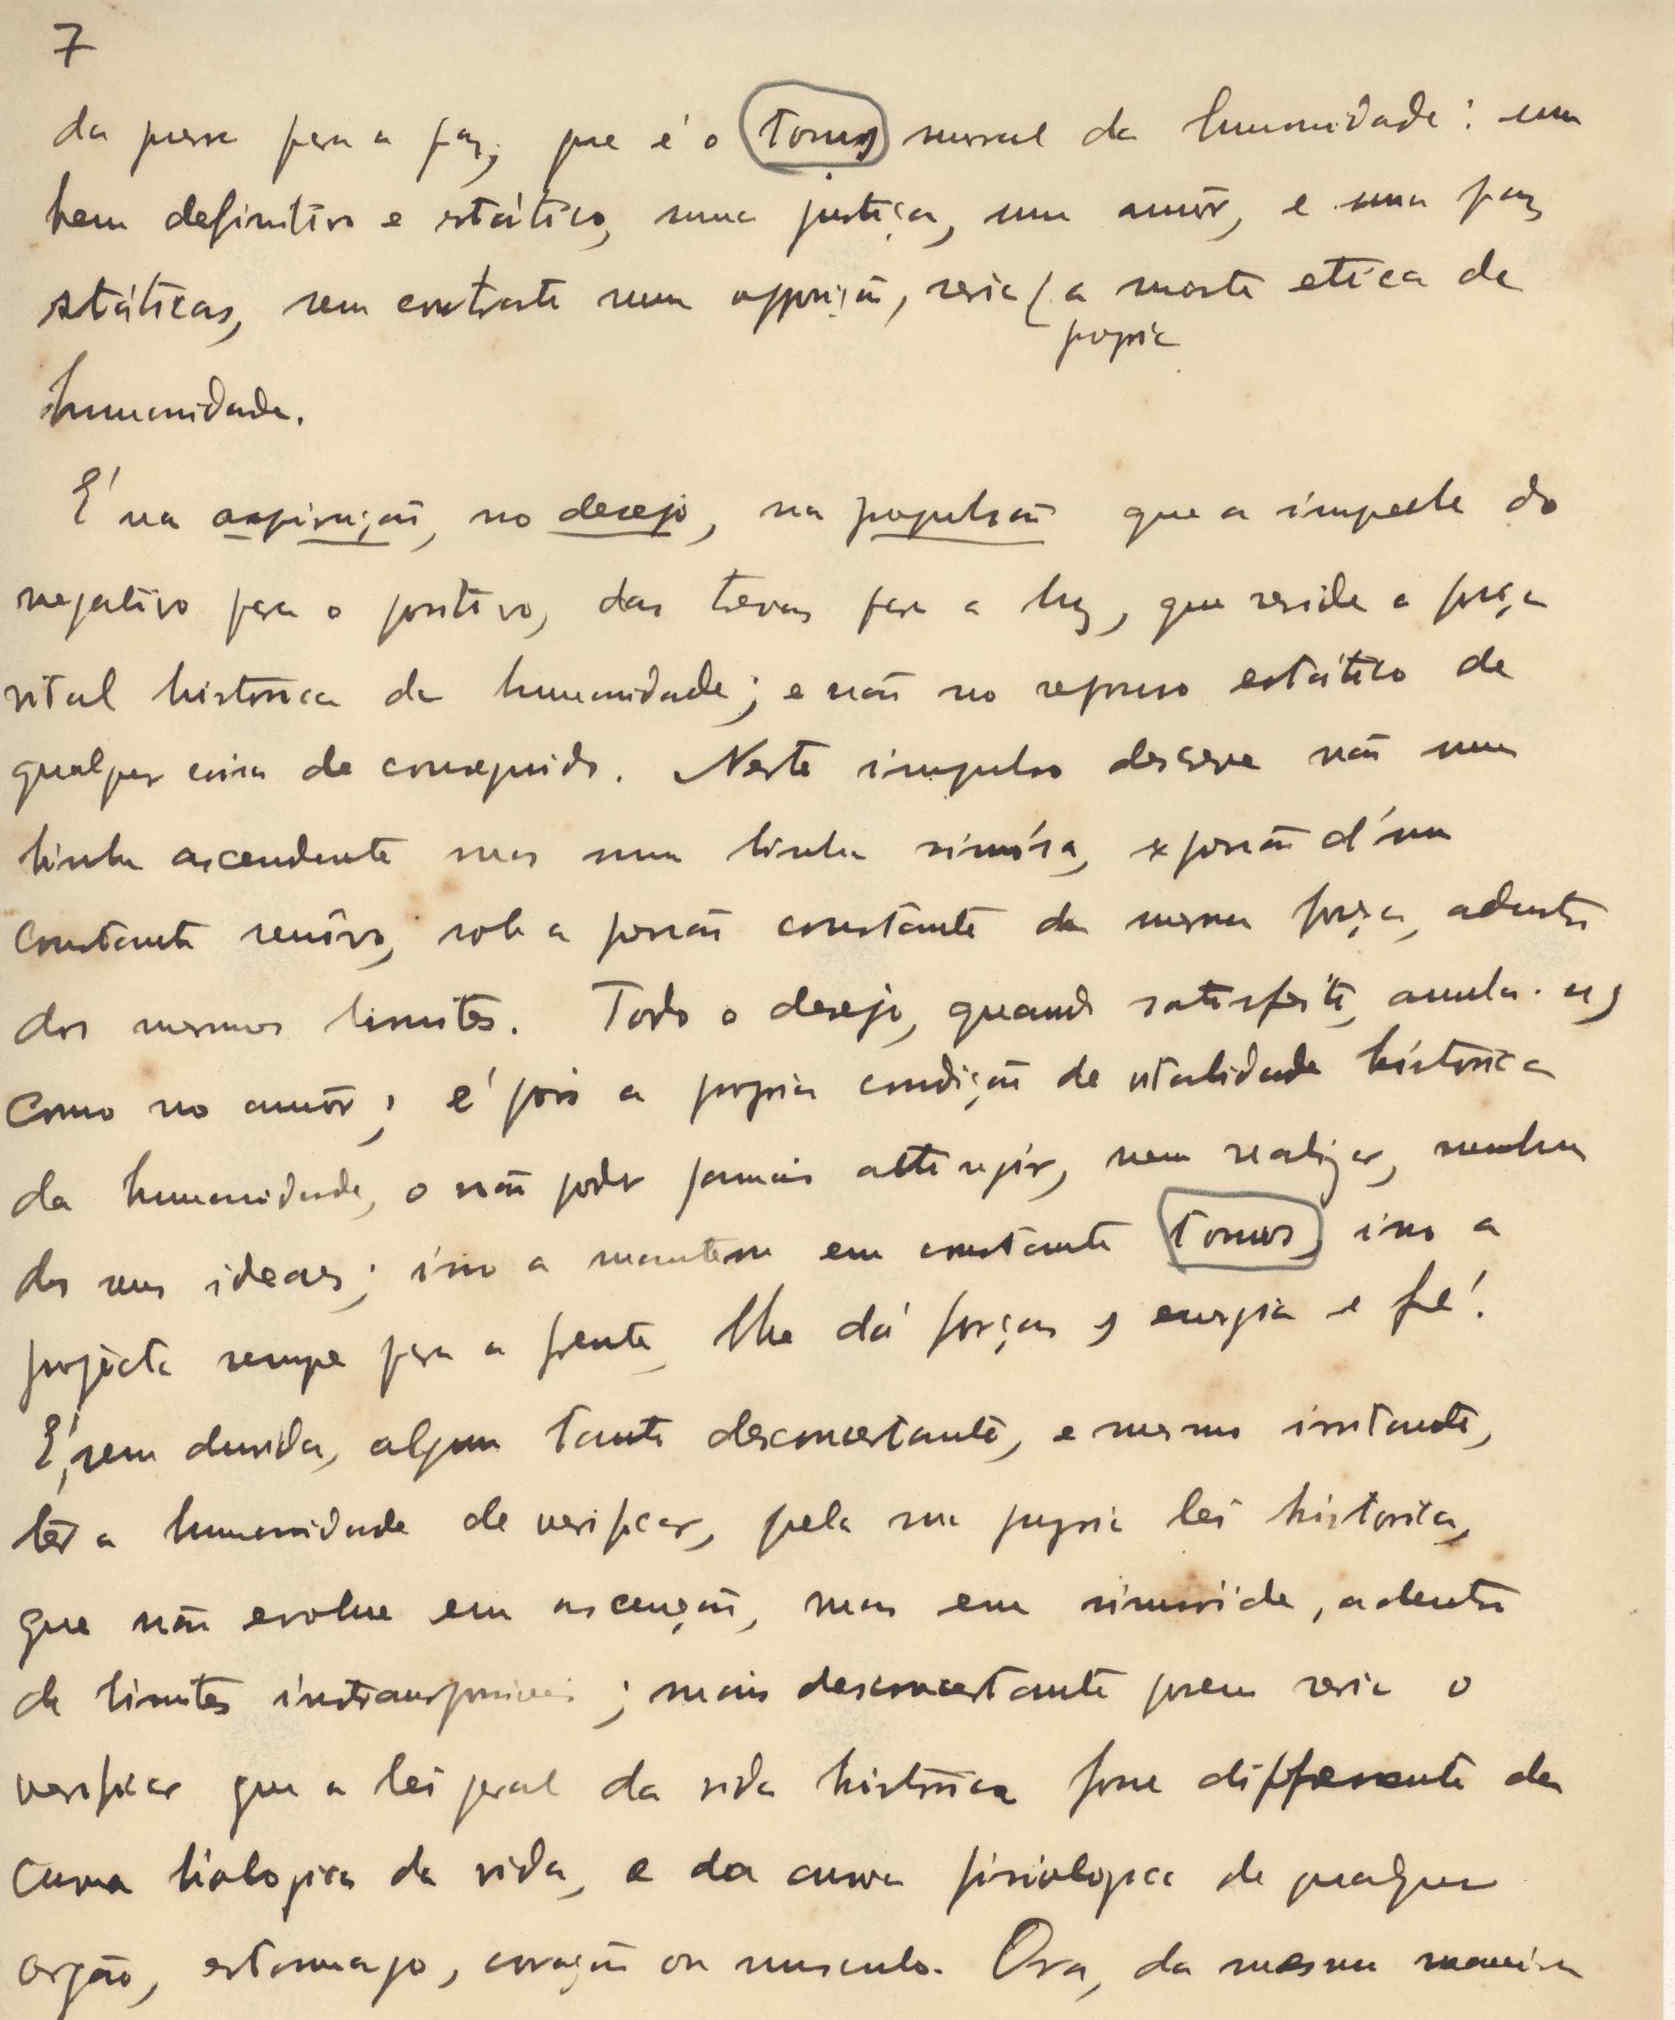 7
da guerra pera a paz, que é o tonus moral da humanidade: um
bem definitivo e estático, uma justiça, um amôr, e uma paz
státicas, sem contraste nem opposição, seria a
propria
morte etica da
humanidade.
É na aspiração, no desejo, na propulsão que a impelle do
negativo pera o positivo, das trevas pera a luz, que reside a força
vital historica da humanidade; e não no repouso estático de
qualquer coisa de conseguido. Neste impulso descreve não uma
linha ascendente mas uma linha sinuósa, expressão d'um
constante reinicio, sob a pressão constante da mesma força, adentro
dos mesmos limites. Todo o desejo, quando satisfeito, anula-se,
como no amôr; é pois a propria condição de vitalidade histórica
da humanidade, o não poder jamais attingir, nem realizar, nenhum
dos seus ideaes; isso a mantem em constante tonus, isso a
projecta sempre pera a frente, lhe dá forças, energia e fé!
É, sem duvida, algum tanto desconcertante, e mesmo irritante,
têr a humanidade de verificar, pela sua propria lei historica,
que não evolue em ascenção, mas em sinusóide, adentro
de limites instransponiveis; mais desconcertante porem seria o
verificar que a lei geral da vida histórica fosse differente da
curva biologica da vida, e da curva fisiologica de qualquer
orgão, estomago, coração ou musculo. Ora, da mesma maneira